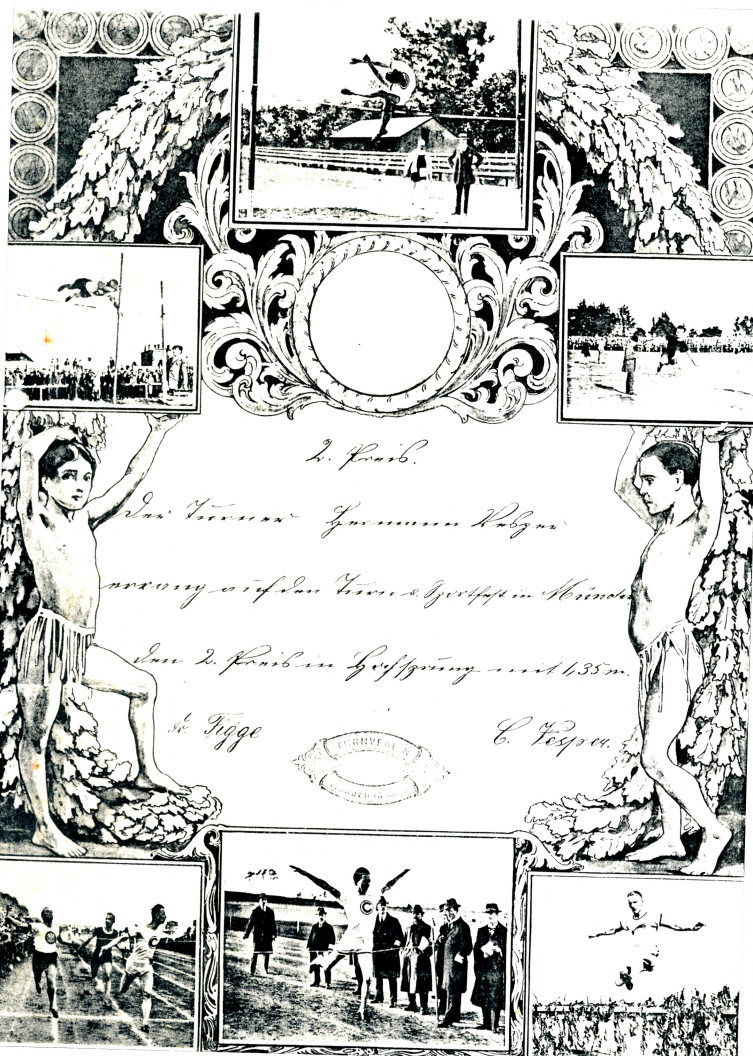 2. Preis.
Der Turner Hermann Vesper
errang auf den Turn & Sportfest in
den 2. Preis in Hochsprung mit 1,35 m.
Figge
C. Vesper.
TURNVEREIN
C